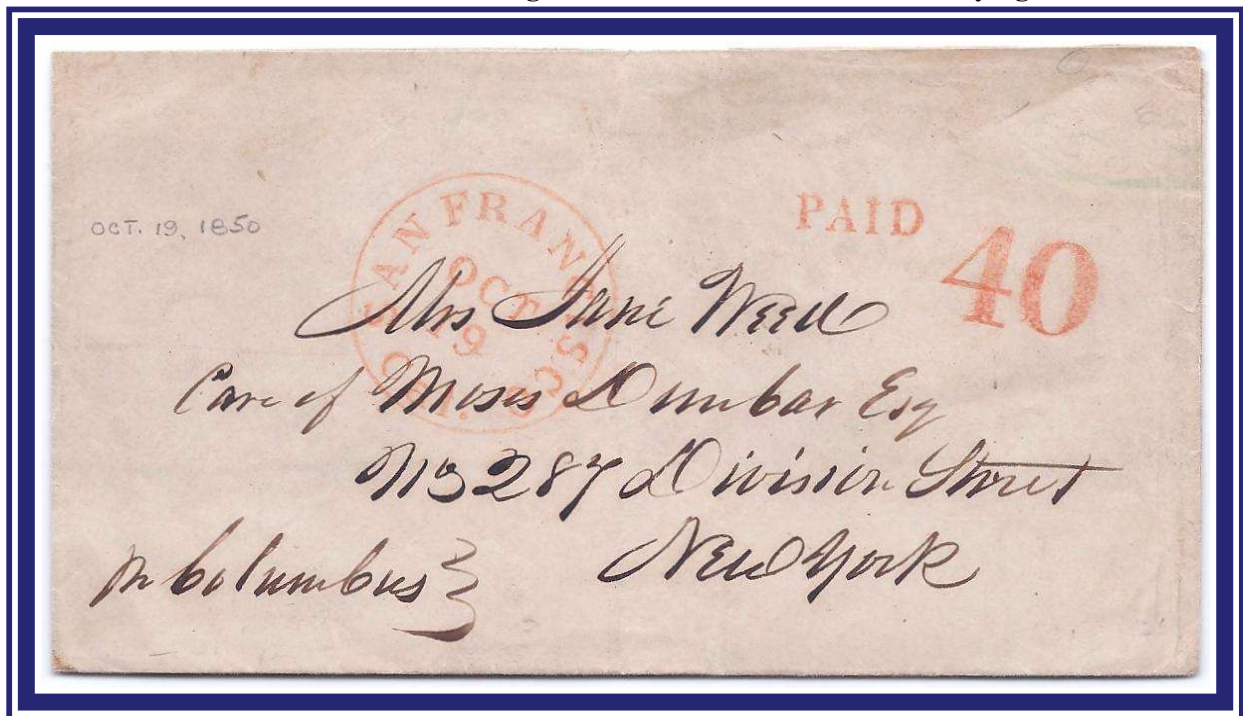 OCT. 19, 1850
SAN FRANCISCO
OCT
19
CAL.
PAID
40
Mrs Jane Weed
Care of Moses Dunbar Esq
No 287 Division Street
New York
Columbus